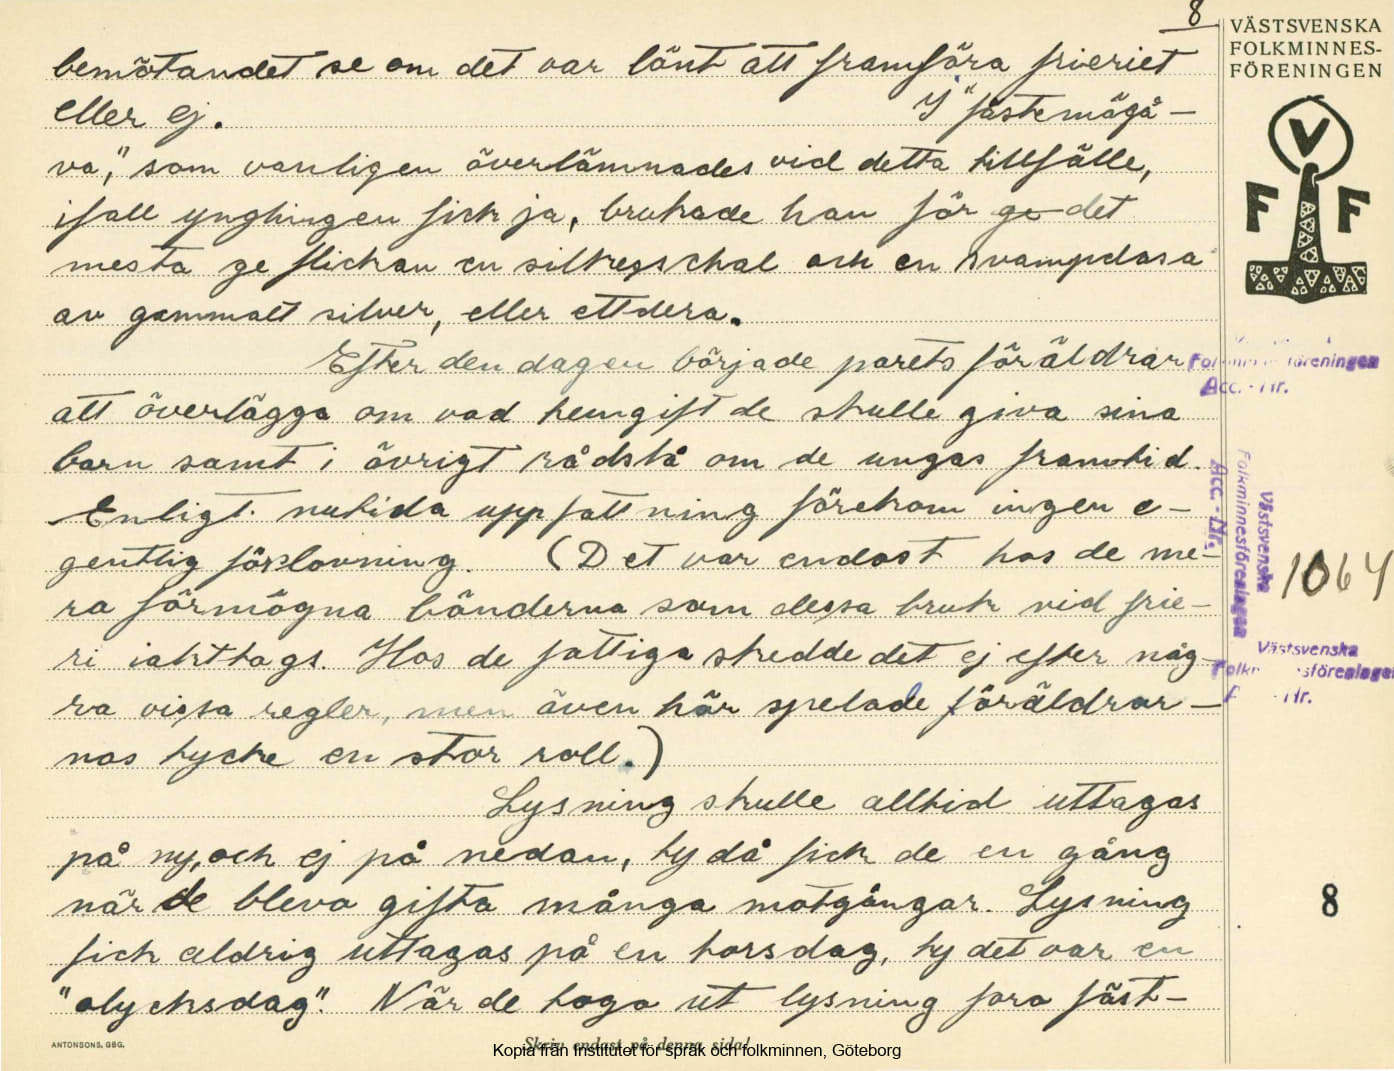 8
VÄSTSVENSKA
FOLKMINNES-
FÖRENINGEN
V
F F
bemötandet se om det var lönt att framföra frieriet
eller ej. I "fästemögå-
va," som vanligen överlämnades vid detta tillfälle,
ifall ynglingen fick ja, brukade han för ge det
mesta ge flickan en silkesschal och en svampdosa
av gammalt silver, eller ettdera.
Efter den dagen började parets föräldrar
att överlägga om vad hemgift de skulle giva sina
barn samt i övrigt rådslå om de ungas framtid.
Enligt nutida uppfattning förekom ingen e-
gentlig förlovning. (Det var endast hos de me-
ra förmögna bönderna som dessa bruk vid frie-
ri iakttogs. Hos de fattiga skedde det ej efter någ-
ra vissa regler, men även här spelade föräldrar-
nas tycke en stor roll.)
Lysning skulle alltid uttagas
på ny, och ej på nedan, ty då fick de en gång
när de blevo gifta många motgångar. Lysning
fick aldrig uttagas på en torsdag, ty det var en
"olycksdag". När de togo ut lysning foro fäst-
Acc. - Nr.
Västsvenska
Folkminnesföreningen
Acc. - Nr.
1064
Västsvenska
8
ANTONSONS, GBG.
Skriv endast på denna sida!
Kopia från Institutet för språk och folkminnen, Göteborg